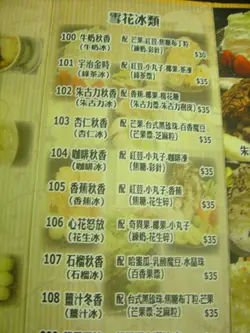 雪花冰類
100 牛奶秋香 配 芒果.紅豆.焦糖布丁粒
(牛奶冰) (煉奶.彩針) $30
101 宇治金時 配 紅豆.小丸子.椰果.茶凍
(綠茶冰) (綠茶漿) $35
102 朱古力秋香 配 香蕉.椰果.梅花糖
(朱古力冰) (朱古力漿.朱古力樹皮) $35
103 杏仁秋香 配 芒果.台式黑珍珠.百香魔豆
(杏仁冰) (芒果漿.芝麻粒) $35
104 咖啡秋香 配 紅豆.小丸子.咖啡凍
(咖啡冰) (焦糖.彩針) $35
105 香蕉秋香 配 紅豆.小丸子.香蕉
(香蕉冰) (焦糖.花生碎) $35
106 心花怒放 配 奇異果.椰果.小丸子
(花生冰) (煉奶.花生碎) $35
107 石榴秋香 配 哈蜜瓜.乳酪魔豆.水晶珠
(石榴冰) (百香果漿) $35
108 薑汁冬香 配 台式黑珍珠.焦糖布丁粒.芒果
(薑汁冰) (芒果漿.芝麻粒) $35